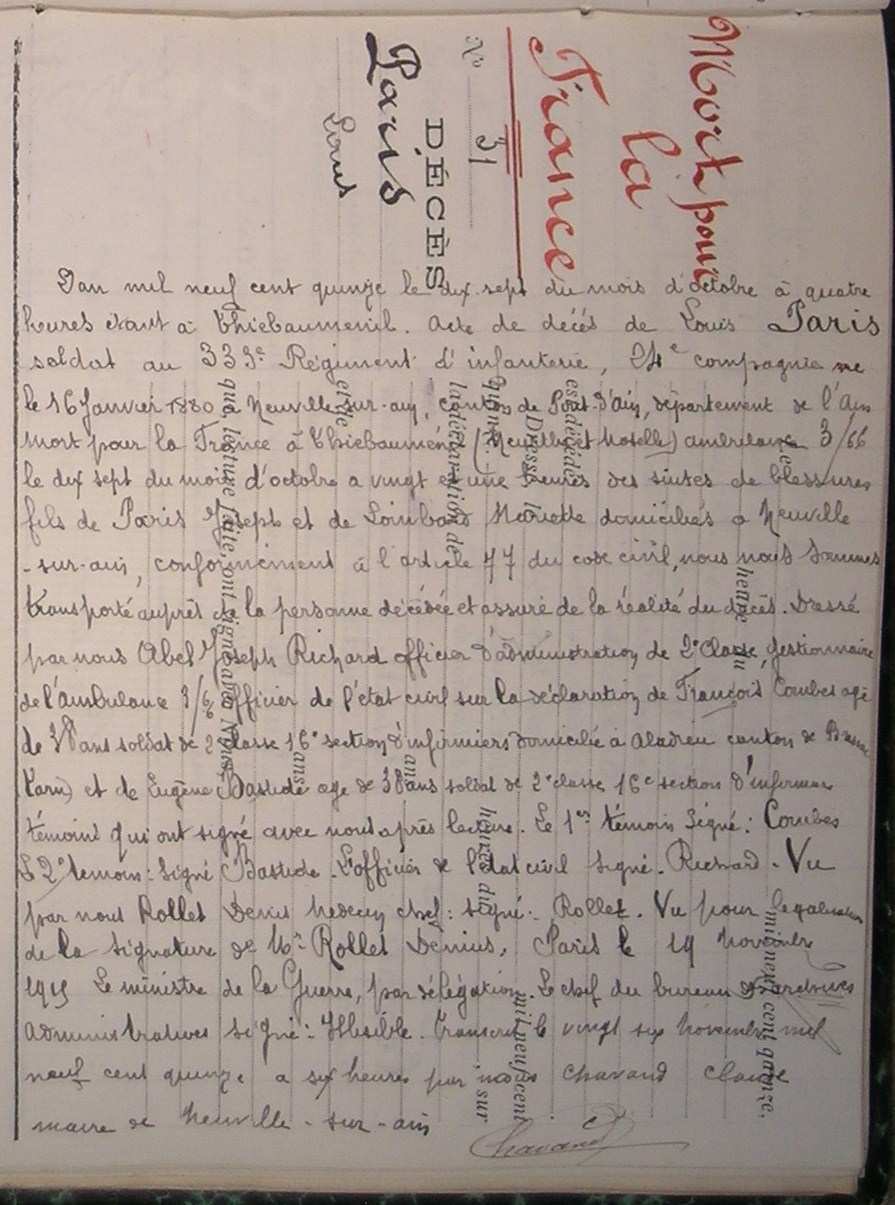 Mort pour
la
France
N° 31
DÉCÈS
Paris
Louis
L'an mil neuf cent quinze le dix sept du mois d'octobre à quatre
heures étant à Thiebaumenil. Acte de décés de Louis Paris
soldat au 333e Régiment d'infanterie, 24e compagnie né
le 16 Janvier 1880 à Neuville-sur-ain, canton de Pont-d'Ain, département de l'Ain
mort pour la France à Thiebauménil (Meurthe et Moselle) ambulance 3/66
le dix sept du mois d'octobre a vingt et une heures des suites de blessures
fils de Paris Joseph et de Loimbard Mariette domiciliés a Neuville
-sur-ain, conformément à l'article 77 du code civil, nous nous sommes
transporté auprès de la personne décédée et assuré de la réalité du décès. Dressé
par nous Abel Joseph Richard officier d'administration de 2e Classe, gestionnaire
de l'ambulance 3/66 officier de l'état civil sur la déclaration de François Combes agé
de 38 ans soldat de 2e classe 16e section d'infirmiers domicilié à canton de
Tarn) et de Eugène Bastide age de 38 ans soldat de 2e classe 16e section d'infirmiers
témoins qui ont signé avec nous après lecture. Le 1er témoin Signé: Combes
Le 2e témoin: signé Bastide. L'officier de l'état civil signé. Richard. Vu
par nous Rollet Denius medecin chef: signé. Rollet. Vu pour legalisation
de la signature de Mr Rollet Denius, Paris le 19 novembre
1915 Le ministre de la Guerre, par délégation. Le chef du bureau d'archives
administratives signé: Illisible. Transcrit le vingt six novembre mil
neuf cent quinze a six heures par nous Chavand Claude
maire de Neuville-sur-ain
Chavand
est décédé
Dressé l
quinze,
la déclaration de
et de
que, lecture faite, ont signé avec Nous
heure du
heure du
ans
ans
mil neuf cent quinze,
mil neuf cent
sur